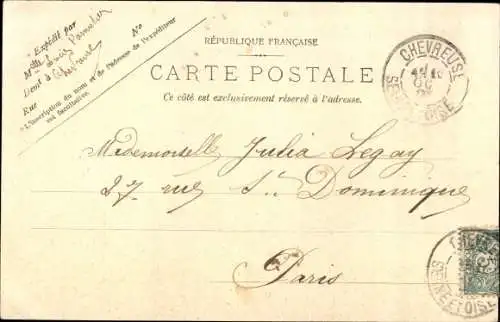 Expédié par
M
Demt à Chevreuse
Rue
N°
L'inscription du nom et de l'adresse de l'expéditeur
est facultative.
RÉPUBLIQUE FRANÇAISE
CARTE POSTALE
Ce côté est exclusivement réservé à l'adresse.
CHEVREUSE
SEINE-ET-OISE
Mademoiselle Julia Legay
27 rue St Dominique
Paris
CHEVREUSE
SEINE-ET-OISE